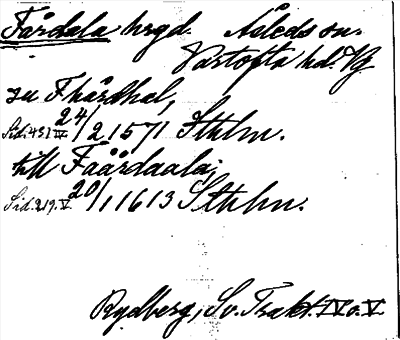 Fårdala hrgd. Åsleds sn.
Vartofta hd. Vg
zu Fhårdhal,
Sid. 431 IV. 24/2 1571 Sthlm.
till Faårdaala;
Sid. 219. V. 20/1 1613 Sthlm.
Rydberg, Sv. Trakt. IV o. V.